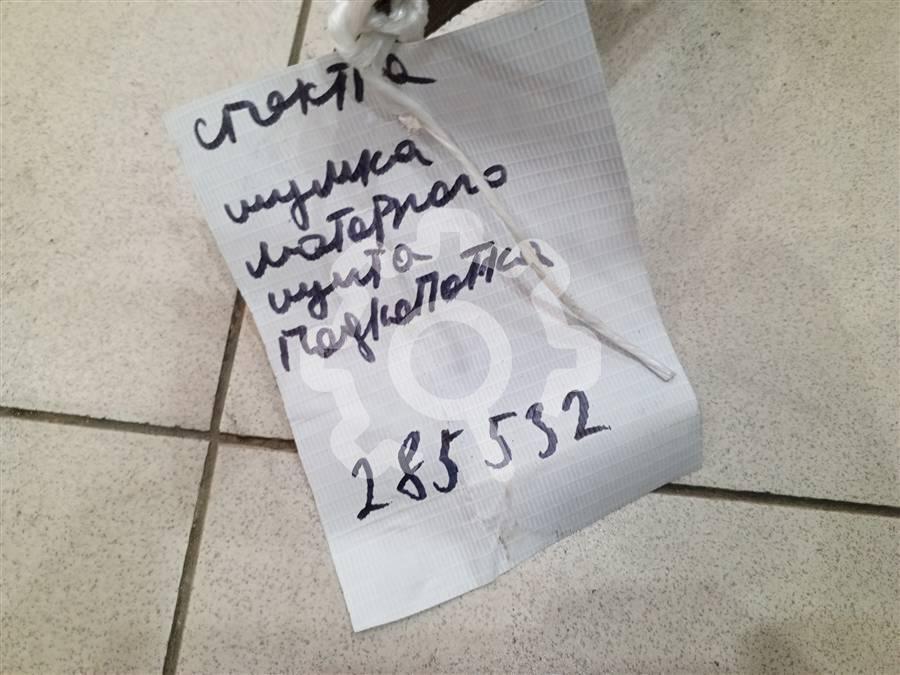 спектра
шумка
моторного
щита
подкапотка
285532